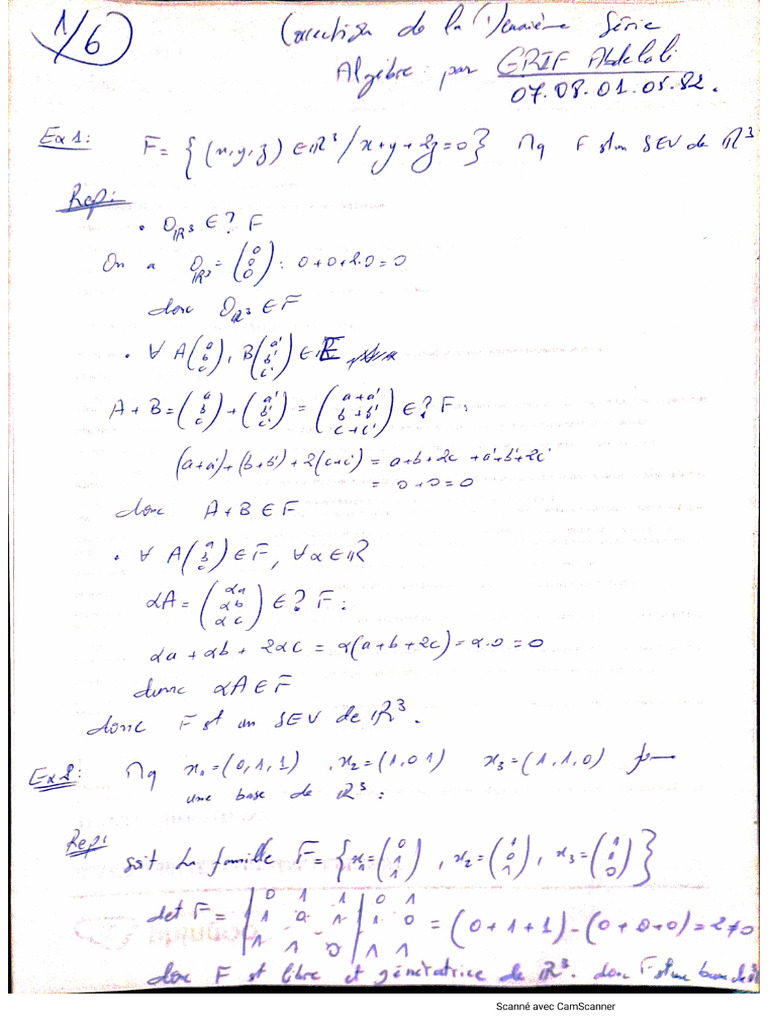 1/6
Correction de la Deuxième Série
Algèbre par GRIF Abdelali
07.08.01.05.82.
Ex 1: F = { (x,y,z) ∈ ℝ³ / x+y+2z=0 } Mq F est un SEV de ℝ³
Rep:
• 0_ℝ³ ∈? F
On a 0_ℝ³ = (0 0 0) : 0+0+2.0=0
donc 0_ℝ³ ∈ F
• ∀ A(a b c), B(a' b' c') ∈ E
A+B = (a b c) + (a' b' c') = (a+a' b+b' c+c') ∈? F:
(a+a')+(b+b')+2(c+c') = a+b+2c +a'+b'+2c'
= 0+0=0
donc A+B ∈ F
• ∀ A(a b c) ∈ F, ∀α∈ℝ
αA = (αa αb αc) ∈? F:
αa + αb + 2αc = α(a+b+2c) = α.0 = 0
donc αA∈F
donc F est un SEV de ℝ³.
Ex 2: Mq x₁=(0,1,1) , x₂=(1,0 1) x₃=(1,1,0)
une base de ℝ³:
Rep:
soit la famille F = { x₁=(0 1 1) , x₂=(1 0 1) , x₃=(1 1 0) }
det F = | 0 1 1 | 0 1
1 0 1 | 1 0 = (0+1+1)-(0+0+0)=2≠0
1 1 0 | 1 1
donc F est libre et génératrice de ℝ³. donc F est une base de ℝ³
Scanné avec CamScanner